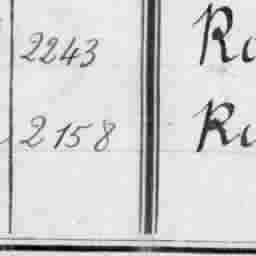 2243
2158